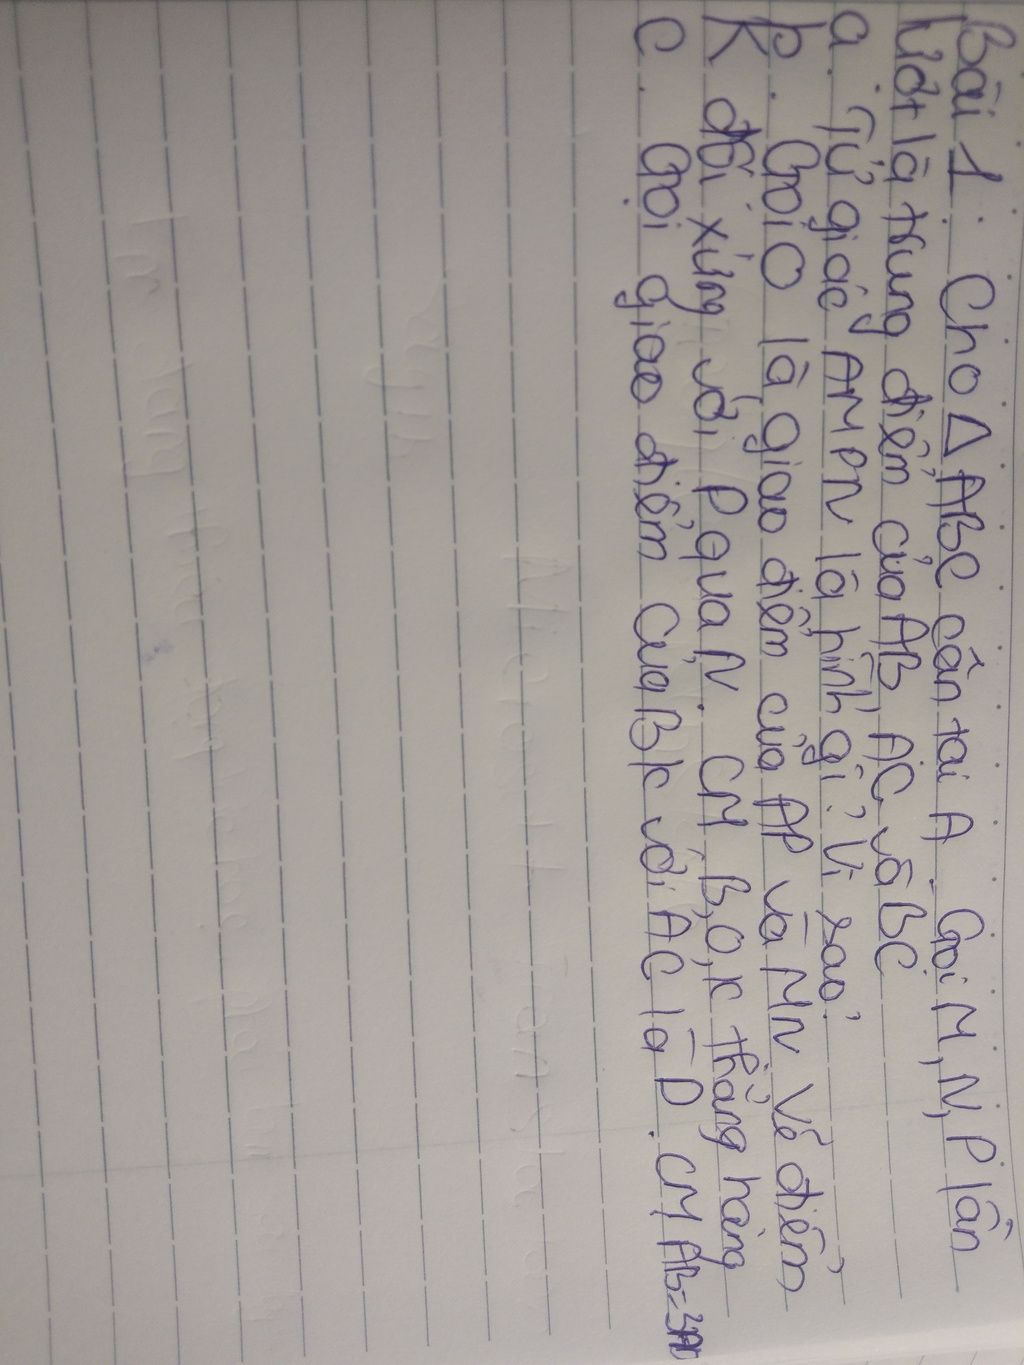 Bài 1: Cho Δ ABC cân tại A. Gọi M, N, P lần
lượt là trung điểm của AB, AC và BC
a. Tứ giác AMPN là hình gì? Vì sao?
b. Gọi O là giao điểm của AP và MN. Vẽ điểm
K đối xứng với P qua N. CM B, O, K thẳng hàng
c. Gọi giao điểm của BK với AC là D. CM AB=3AD